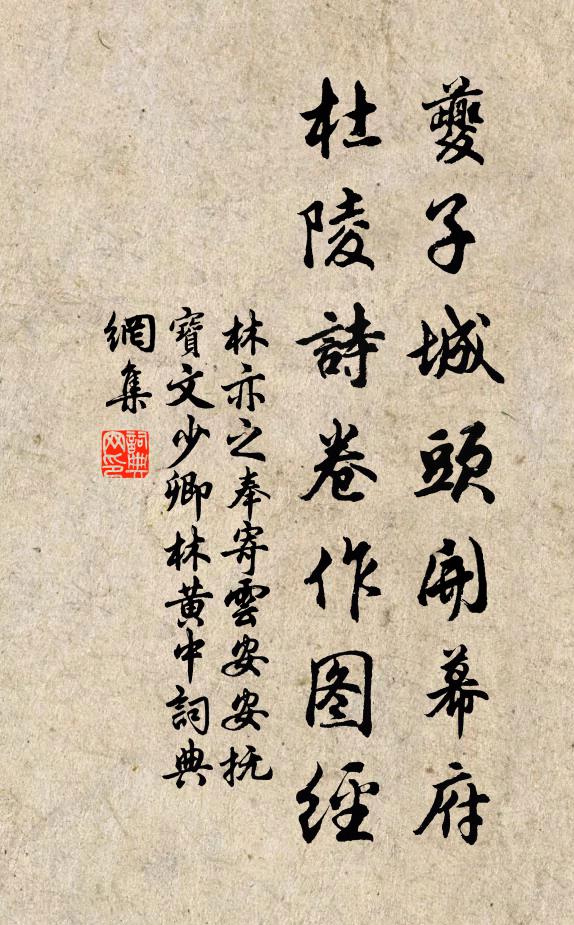 夔子城頭開幕府
杜陵詩卷作图經
林亦之奉寄雲安安抚
寳文少卿林黄中詞典
網集
詞典网印